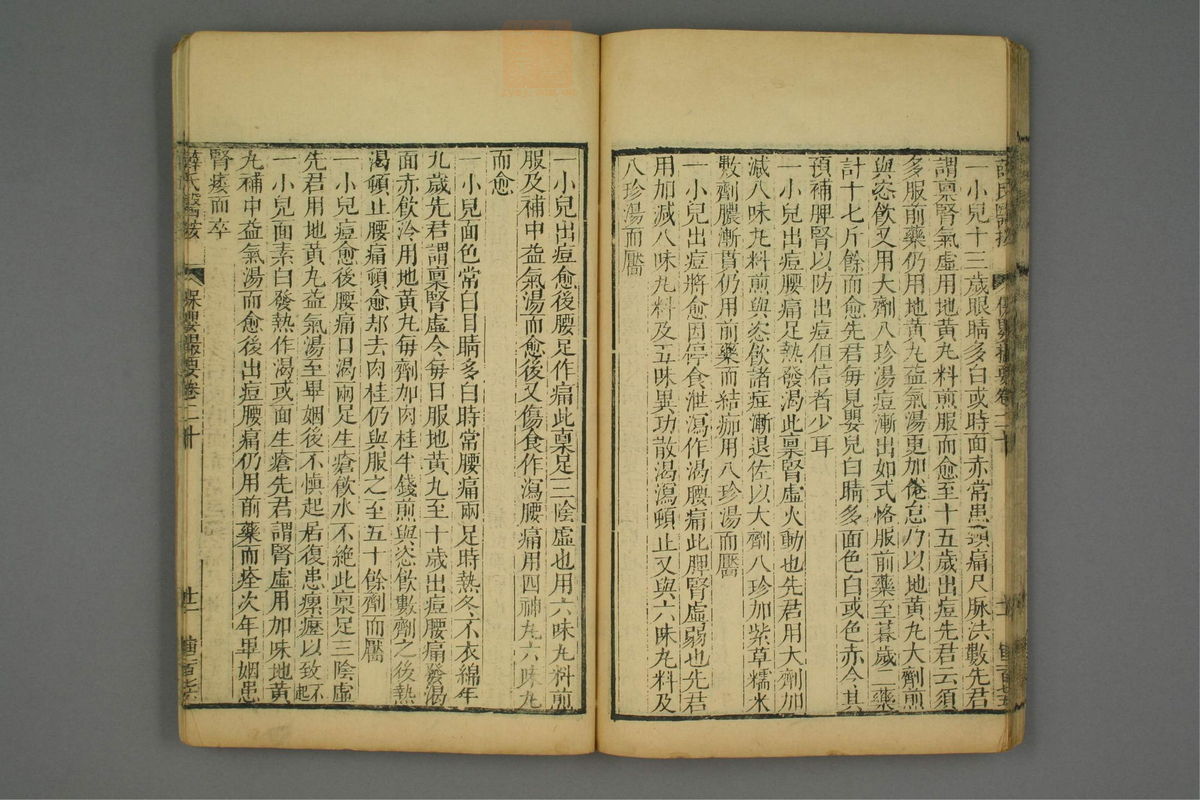 薛氏醫按 保嬰撮要卷二十
一小兒十三歲眼睛多白或時面赤常患頭痛尺脉洪數先君
謂稟腎氣虛用地黃丸料煎服而愈至十五歲出痘先君云須
多服前藥仍用地黃丸益氣湯更加倦怠乃以地黃丸大劑煎
與恣飲又用大劑八珍湯痘漸出如式恪服前藥至暮歲二藥
計十七斤餘而愈先君每見嬰兒白睛多面色白或色赤令其
預補脾腎以防出痘但信者少耳
一小兒出痘腰痛足熱發渴此稟腎虛火動也先君用大劑加
減八味丸料煎與恣飲諸症漸退佐以大劑八珍加紫草糯米
數劑膿漸貫仍用前藥而結痂用八珍湯而靨
一小兒出痘將愈因停食泄瀉作渴腰痛此脾腎虛弱也先君
用加減八味丸料及五味異功散渴瀉頓止又與六味丸料及
八珍湯而靨
一小兒出痘愈後腰足作痛此稟足三陰虛也用六味丸料煎
服及補中益氣湯而愈後又傷食作瀉腰痛用四神丸六味丸
而愈
一小兒面色常白目睛多白時常腰痛兩足時熱冬不衣綿年
九歲先君謂稟腎虛令每日服地黃丸至十歲出痘腰痛發渴
面赤飲冷用地黃丸每劑加肉桂半錢煎與恣飲數劑之後熱
渴頓止腰痛頓愈却去肉桂仍與服之至五十餘劑而靨
一小兒痘愈後腰痛口渴兩足生瘡飲水不絕此稟足三陰虛
先君用地黃丸益氣湯至畢姻後不慎起居復患瘰癧以致不起
一小兒面素白發熱作渴或面生瘡先君謂腎虛用加味地黃
丸補中益氣湯而愈後出痘腰痛仍用前藥而痊次年畢姻患
腎痿而卒
薛氏醫按 保嬰撮要卷二十